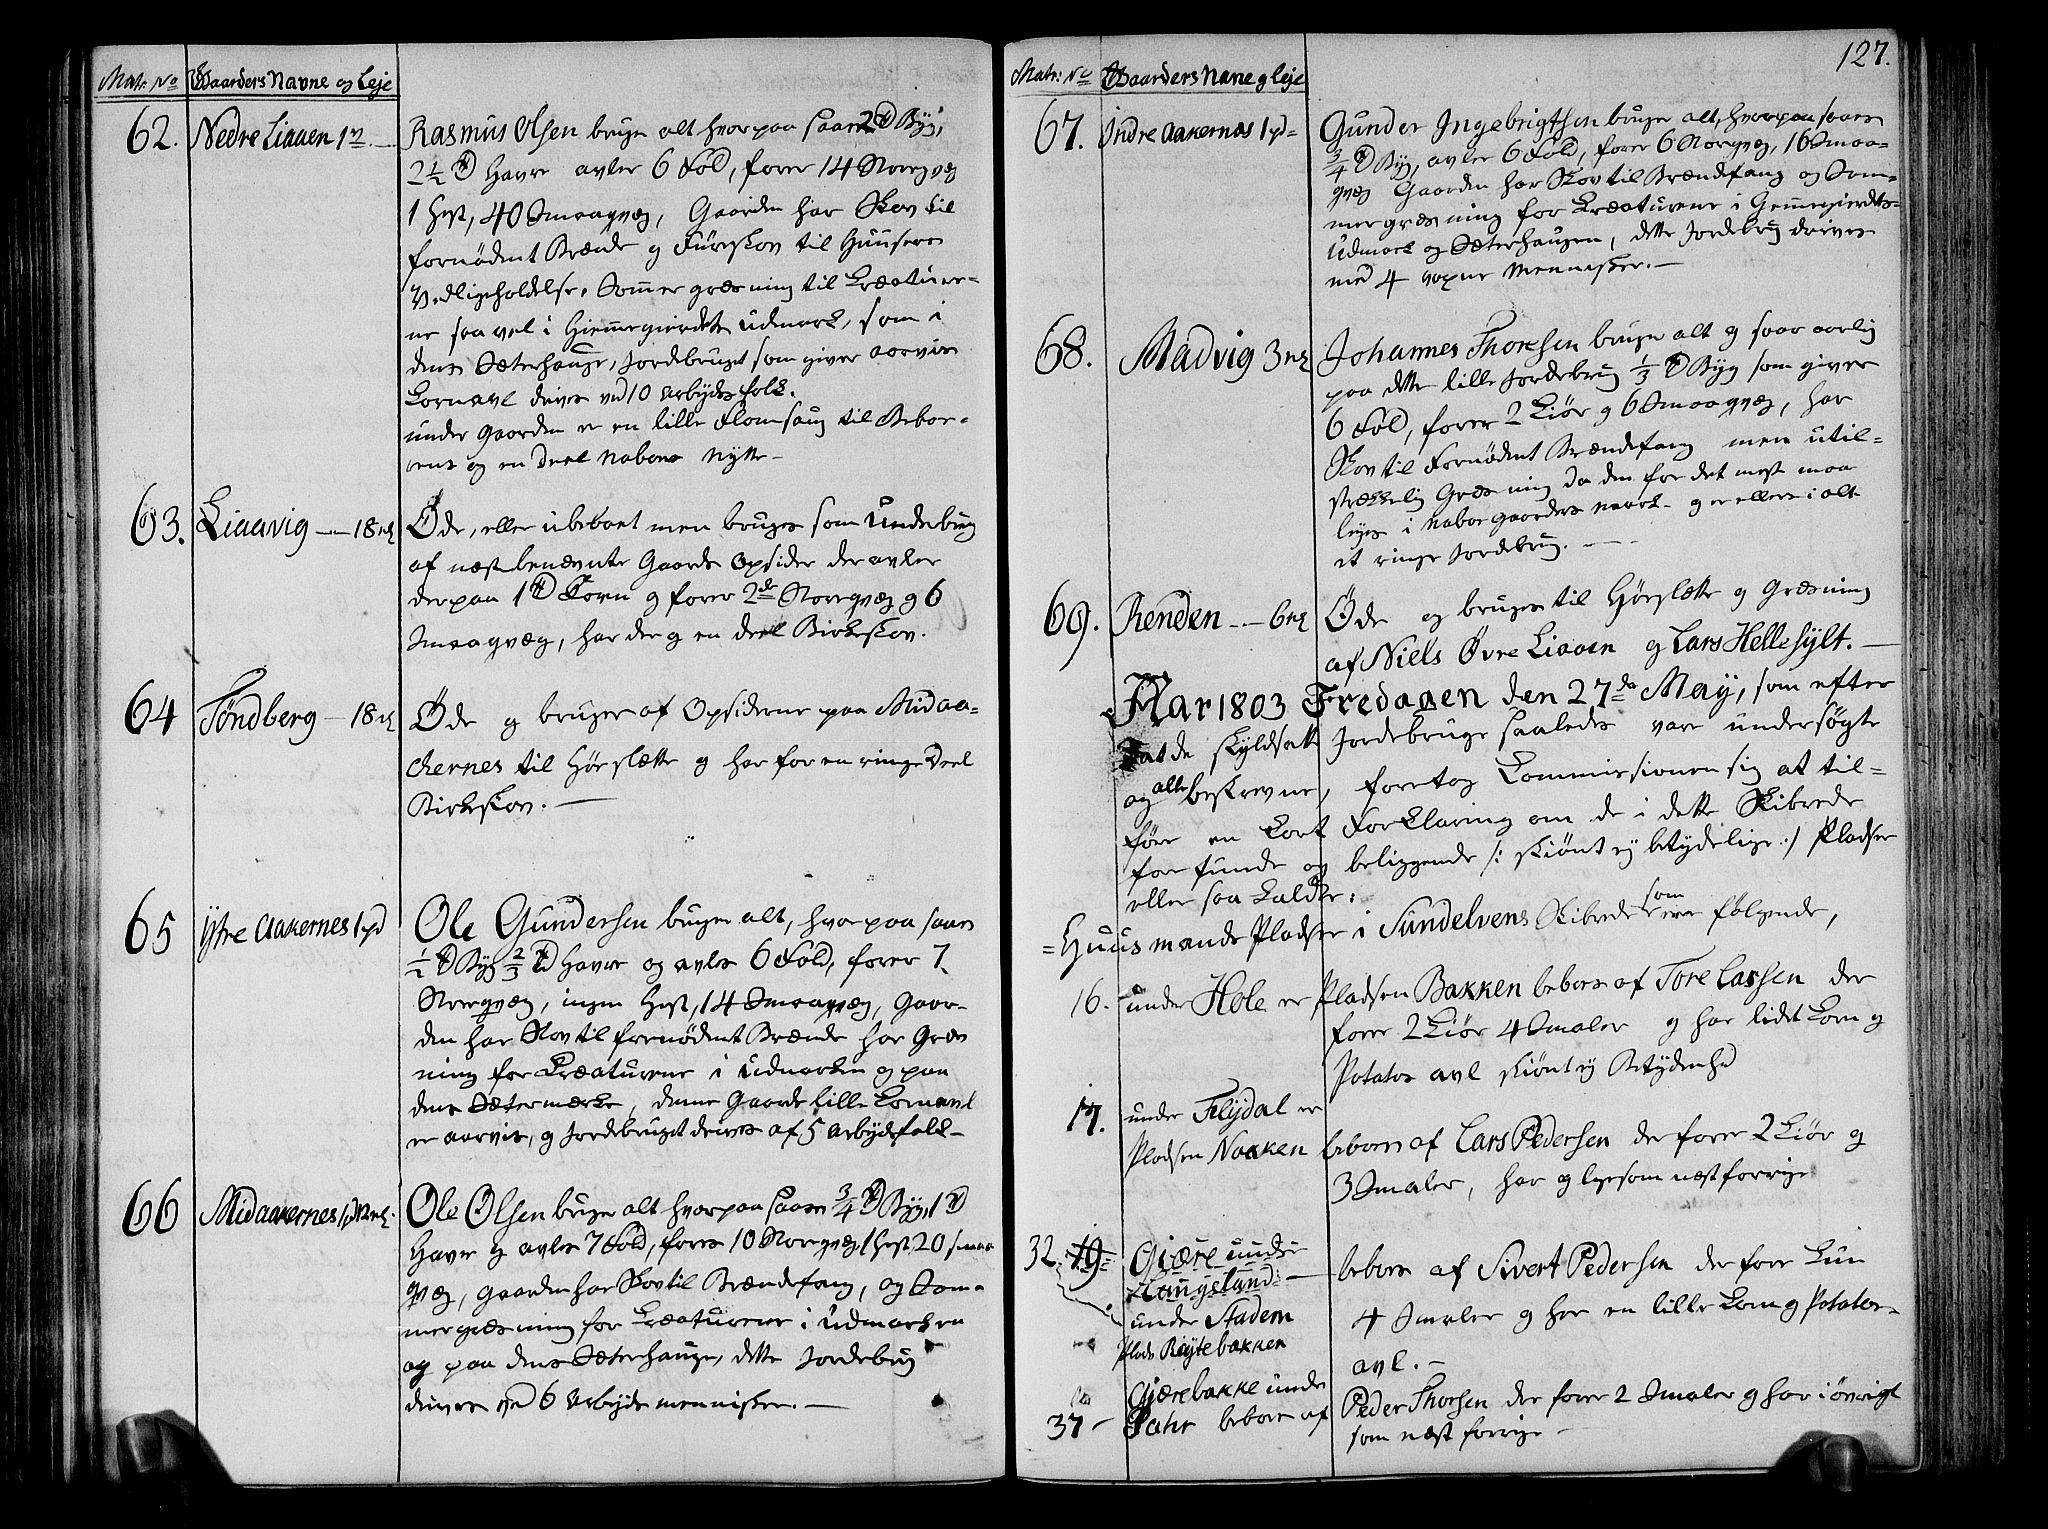 Matr: No Gaarders Navne og Leje
62. Nedre Liaaen 1 Rasmus Olsen bruger alt hvorpaa saaes 2 Td Byg,
2½ Td Havre avler 6 Fold, foder 14 Storqvæg
1 Hest, 40 Smaaqvæg, Gaarden har Skov til
fornødent Brænde og Fureskov til Huusenes
Vedligeholdelse, Sommergræsning til Creature-
ne saavel i Hiemmegierdets Udmark, som i
dens Sæterhauge, Jordebruget som giver aarvis
Kornavl drives ved 10 Arbeydsfolk.
under Gaarden er en lille Flomsaug til Beboe-
rens og en Deel Naboers Nytte -
63. Liaavig - 18 Øde, eller ubeboet men bruges som Underbrug
af næstbenævnte Gaards Opsider der avler
derpaa 1 Td Korn og foder 2de Storqvæg og 6
Smaaqvæg, har der og en Deel Birkeskov.
64 Tøndberg - 18 Øde og bruges af Opsiderne paa Midaa-
chernes til Høeslætte og har for en ringe Deel
Birkeskov. -
65 Ystre Aakernes 1 Ole Gundersen bruger alt, hvorpaa saaes
½ Td Byg 2/3 Td Havre og avler 6 Fold, foder 7
Storqvæg, ingen Hest, 14 Smaaqvæg, Gaar-
den har Skov til fornødent Brænde har Græs
ning for Creaturene i Udmarken og paa
dens Sætermærke, denne Gaards lille Kornavl
er aarvis, og Jordebruget drives af 5 Arbeydsfolk -
66 Midaakernes 1 Ole Olsen bruger alt hvorpaa saaes ¾ Td Byg, 1 Td
Havre og avler 7 Fold, foder 10 Storqvæg 1 Hest, 20 Smaa
qvæg, Gaarden har Skov til Brændefang, og Som-
mergræsning for Creaturene i Udmarken
og paa dens Sæterhauge, dette Jordebrug
drives ved 6 Arbeyds mennisker. -
127.
Matr: No Gaarders Navne og Leje
67. Indre Aakernes 1 Gunder Ingebrigtsen bruger alt, hvorpaa saaes
¾ Td Byg, avler 6 Fold, foder 6 Storqvæg, 16 Smaa-
qvæg Gaarden har Skov til Brændefang og Som-
mergræsning for Creaturene i Hemmegierdets-
Udmark og Sæterhaugen, dette Jordebrug drives
med 4 voxne Mennesker. -
68. Madvig 3 Johannes Thoresen bruger alt og saar aarlig
paa dette lille Jordebrug 1/3 Td Byg som giver
6 Fold, foder 2 Kiør og 6 Smaaqvæg, har
Skov til Fornødent Brændefang men util-
strækkelig Græsning da den for det meste maa
leyes i Naboegaarders Mark - og er ellers i alt
et ringe Jordebrug. -
69. Renden - 6 Øde og bruges til Høeslætte og Græsning
af Niels Øvre Liaaen og Lars Hellesylt. -
Aar 1803 Fredagen den 27de May, som efter
at de skyldsatte Jordebruge saaledes vare undersøgte
og alle beskrevne, foretog Commissionen sig at til-
føre en kort Forklaring om de i dette Skibrede
forfunde og beliggende /: skiønt ey betydelige :/ Pladser
eller saa kaldte:
Huusmands Pladser i Sundelvens Skibrede som ere følgende,
16. under Hole er Pladsen Bakken beboes af Tore Larsen der
foder 2 Kiør 4 Smaler og har lidet Korn og
Potatos avl skiønt ey Betydenhed
17. under Flydal er
Pladsen Nakken beboes af Lars Pedersen der foder 2 Kiør og
3 Smaler, har og ligesom næst forrige
32. 19 Gjære under
Haugsland: - beboes af Sivert Pedersen der foder Kun
under Stadem 4 Smaler og har en lille Korn og Potatos-
Plads Røytebakken avl. -
Gjærebakke under
37 - beboes af Peder Thorsen der foder 2 Smaler og har i øvrigt
som næst forrige -